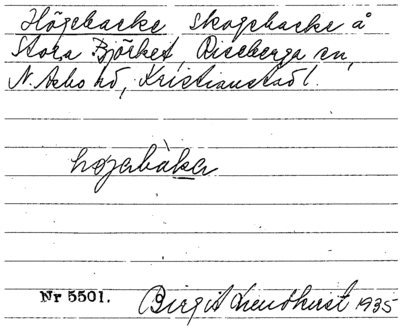 Högebacke, skogsbacke å
Stora Björket, Riseberga sn,
N. Åsbo hd, Kristianstads l.
högabàka
Nr 5501.
Birgit Lundkvist 1935